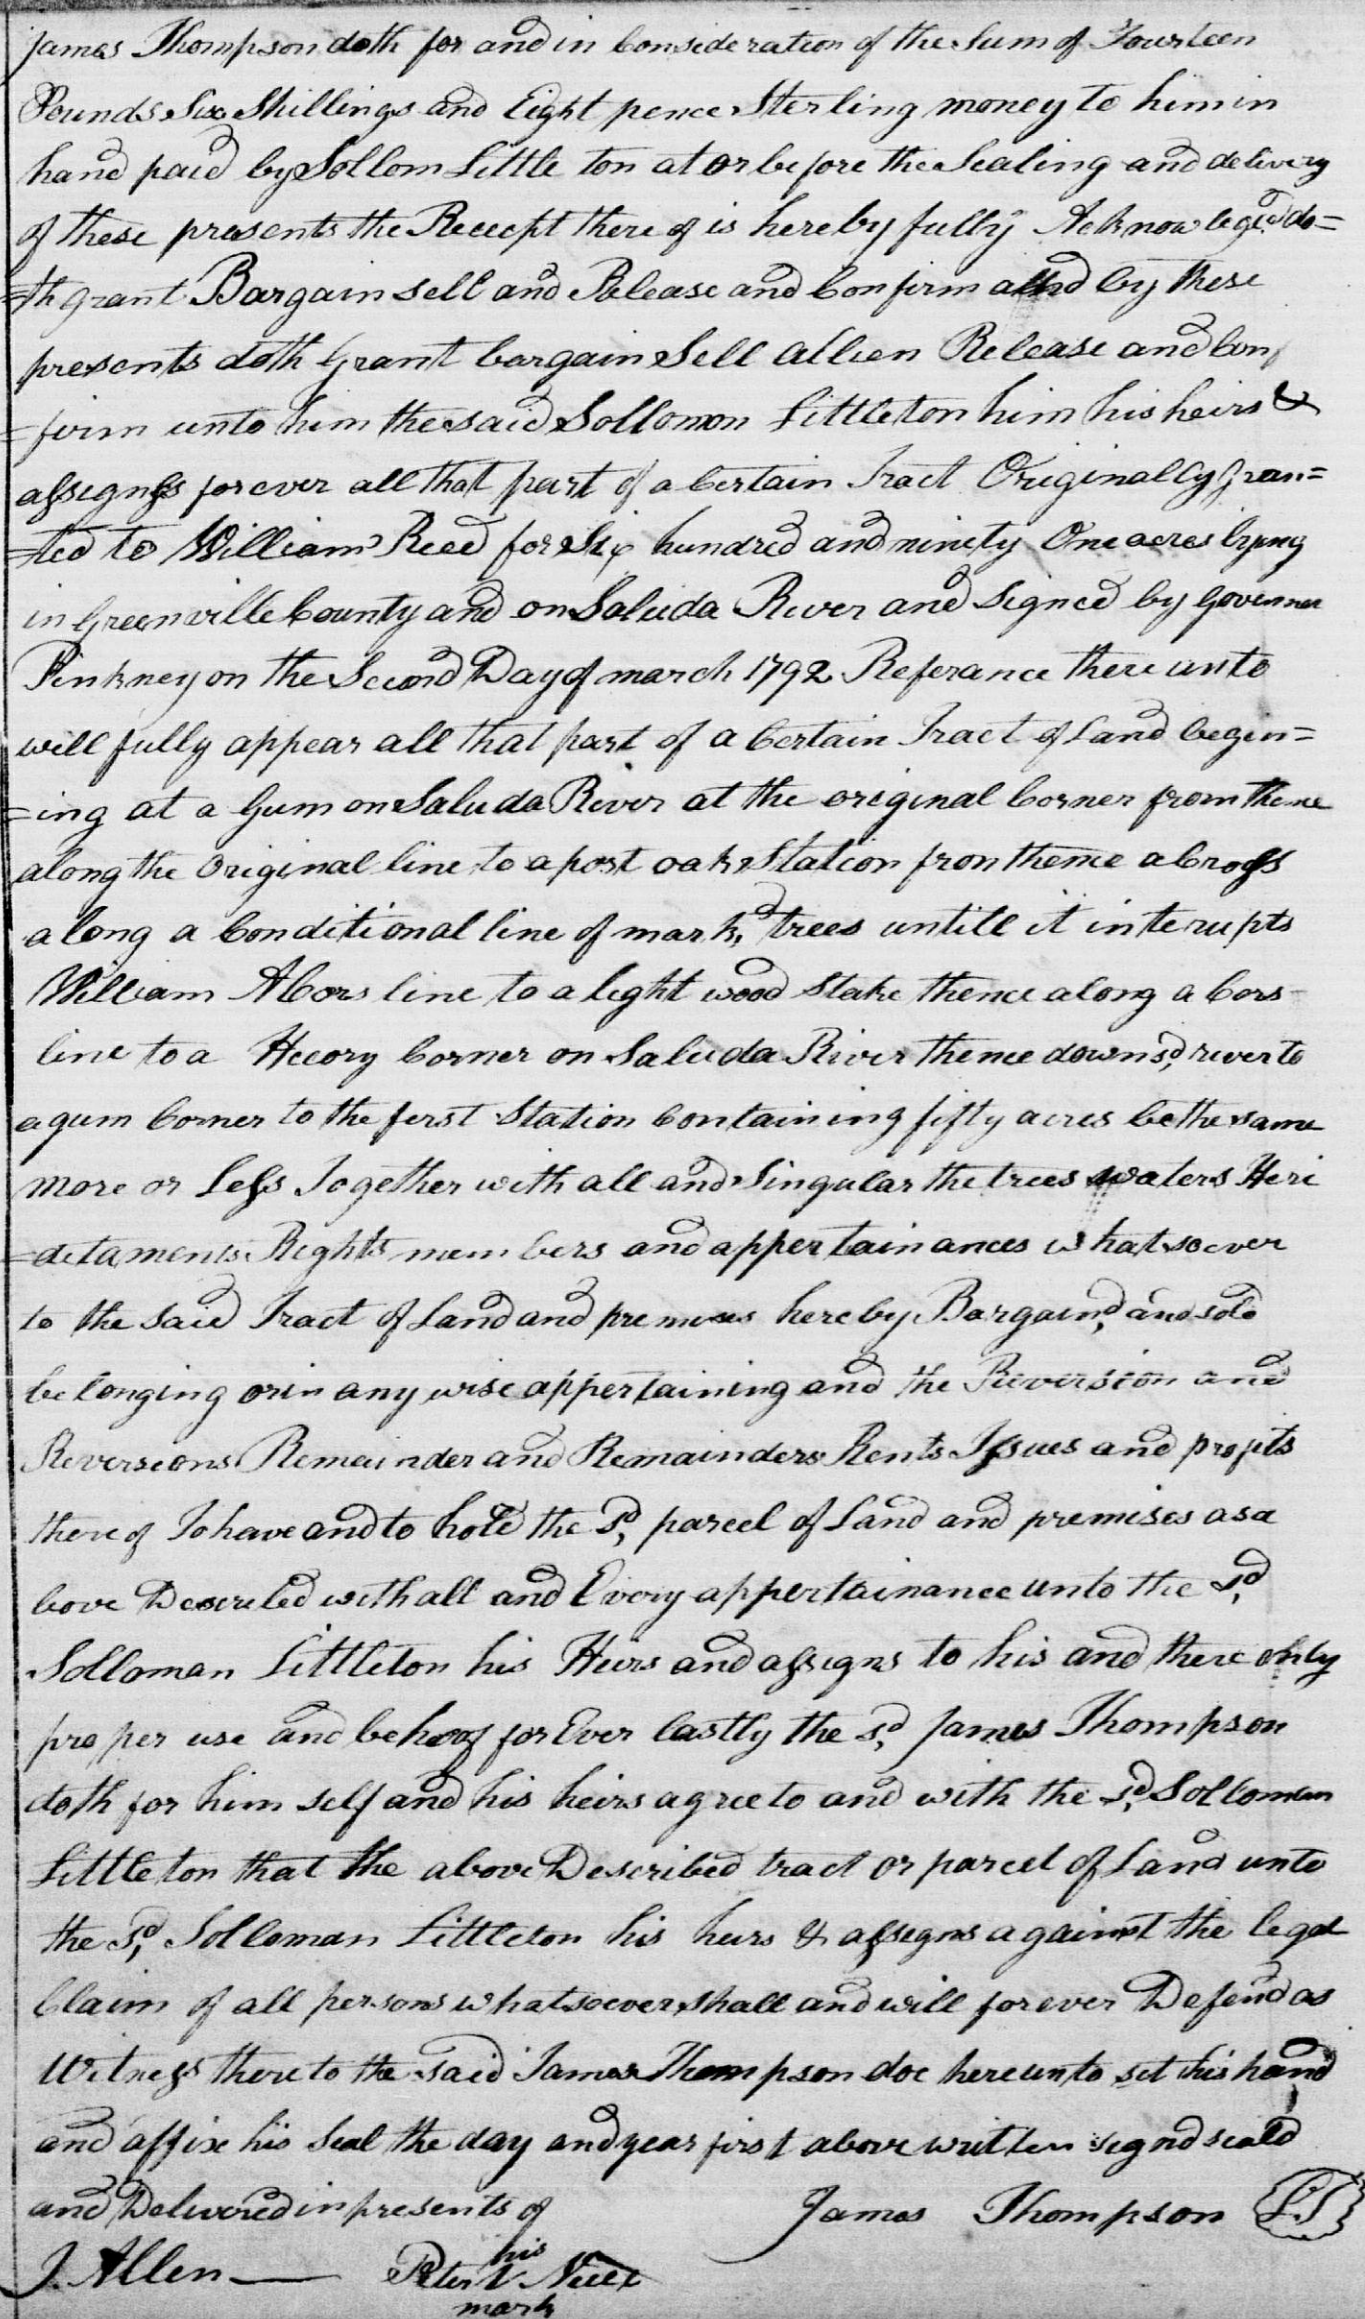 James Thompson doth for and in Consideration of the Sum of Fourteen
Pounds Six Shillings and Eight pence Sterling money to him in
hand paid by Sollom Little ton at or before the Sealing and delivery
of these presents the Receept there of is hereby fully Acknowleged do=
=th grant Bargain sell and Release and Confirm and by these
presents doth Grant bargain Sell allien Release and Con
=firm unto him the said Sollomon Littleton him his heirs &
assignss forever all that part of a Certain Tract Originally Gran=
=ted to William Reed for Six hundred and ninety One acres lying
in Greenville County and on Saluda River and Signed by Governer
Pinkney on the Second Day of march 1792 Referance there unto
will fully appear all that part of a Certain Tract of Land begin=
=ing at a Gum on Saluda River at the original Corner from thence
along the Original line to a post oak Station from thence a Cross
along a Conditional line of mark,d trees untill it interupts
William line to a light wood Stake thence along a Cors
line to a Heeory Corner on Saluda River thence down sd, river to
a gum Corner to the first Station Containing fifty acres be the same
more or Less Together with all and Singular the trees waters Heri
=detaments Rights members and appertainances whatsoever
to the said Tract of Land and premises hereby Bargain,d and sold
belonging or in any wise appertaining and the Reversion and
Reversions Remainder and Remainders Rents Issues and profits
there of To have and to hold the Sd, parcel of Land and premises as a
bove Descriled with all and Every appertainance unto the Sd,
Solloman Littleton his Heirs and assigns to his and there only
proper use and behoof for Ever lastly the sd, James Thompson
doth for him self and his heirs agree to and with the sd, Solloman
Littleton that the above Described tract or parcel of Land unto
the Sd, Solloman Littleton his heirs & assigns against the legal
Claim of all persons whatsoever shall and will forever Defend as
Witness there to the said James Thompson doe hereunto set his hand
and affix his Seal the day and year first above written signd seald
and Delivered in presents of James Thompson LS
J. Allen his
Peter
mark